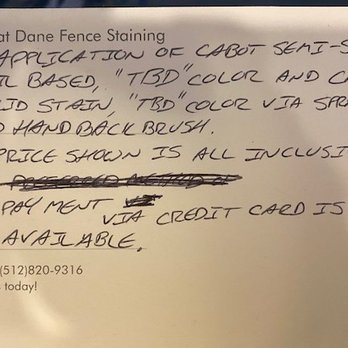 at Dane Fence Staining
APPLICATION OF CABOT SEMI-S
IL BASED, "TBD" COLOR AND C
ID STAIN, "TBD" COLOR VIA SPR
D HAND BACK BRUSH.
PRICE SHOWN IS ALL INCLUSI
PAYMENT VIA CREDIT CARD IS
AVAILABLE.
(512)820-9316
today!